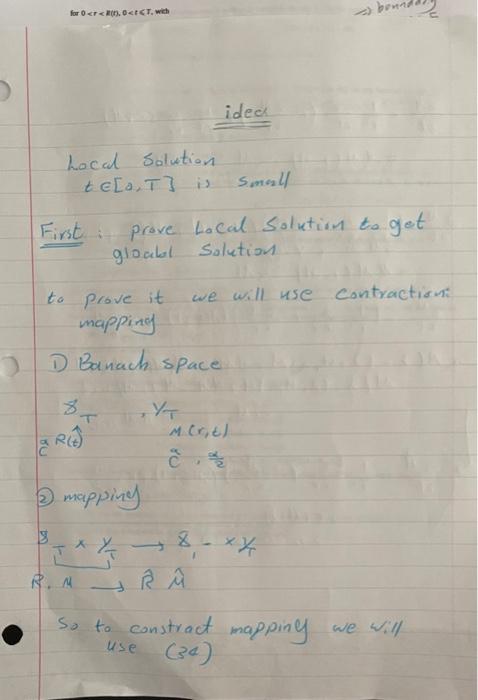 for 0 < r < R(t), 0 < t ⩽ T, with
=> boundary
idea
Local Solution
t ∈ [0, T] is small
First : prove Local Solution to get
gloabal Solution
to prove it we will use contraction
mapping
1) Banach space
8_T , Y_T
R(t) M(r,t)
C^α C^{α, α/2}
② mapping
8_T × Y_T → 8_T × Y_T
R, M → R̂ M̂
So to constract mapping we will
use (34)